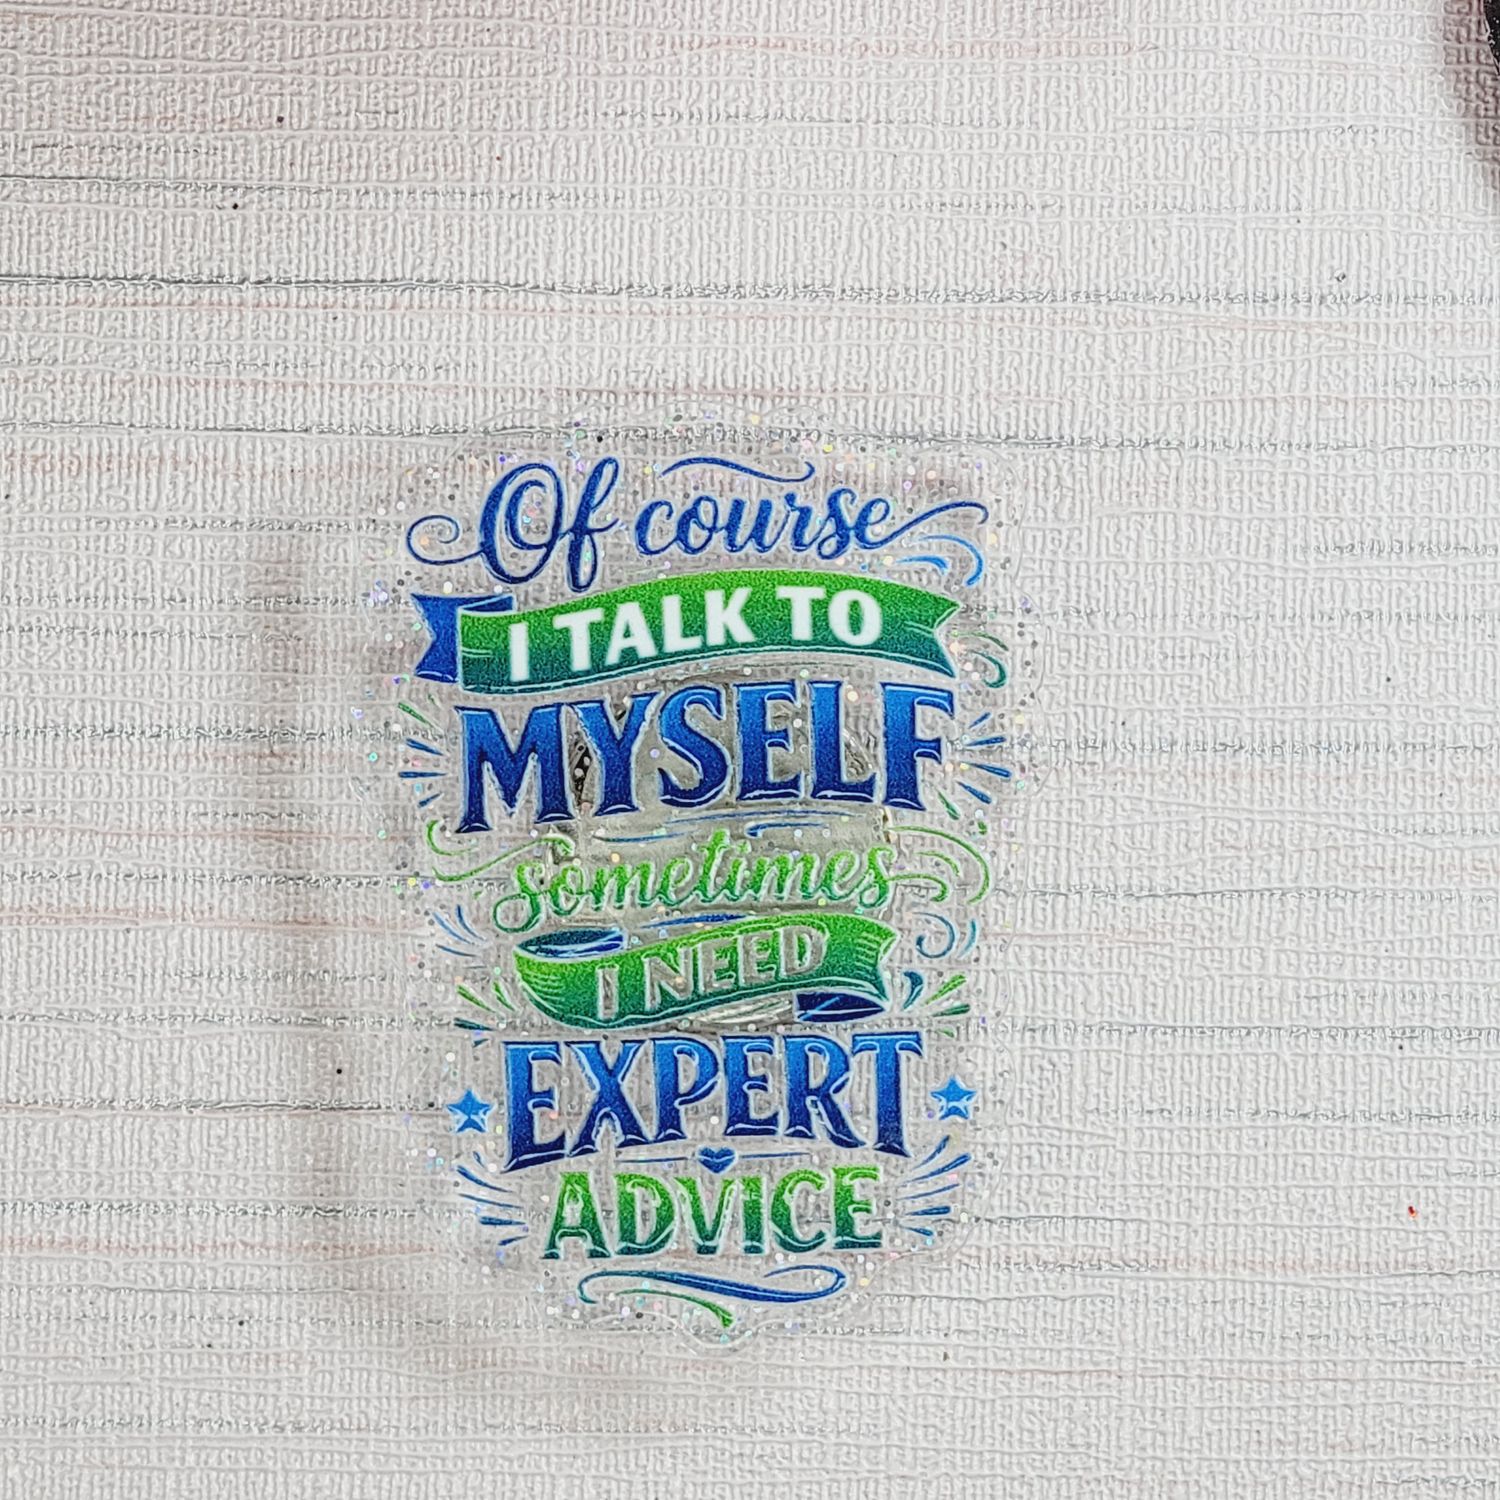 Of course
I TALK TO
MYSELF
sometimes
I NEED
EXPERT
ADVICE